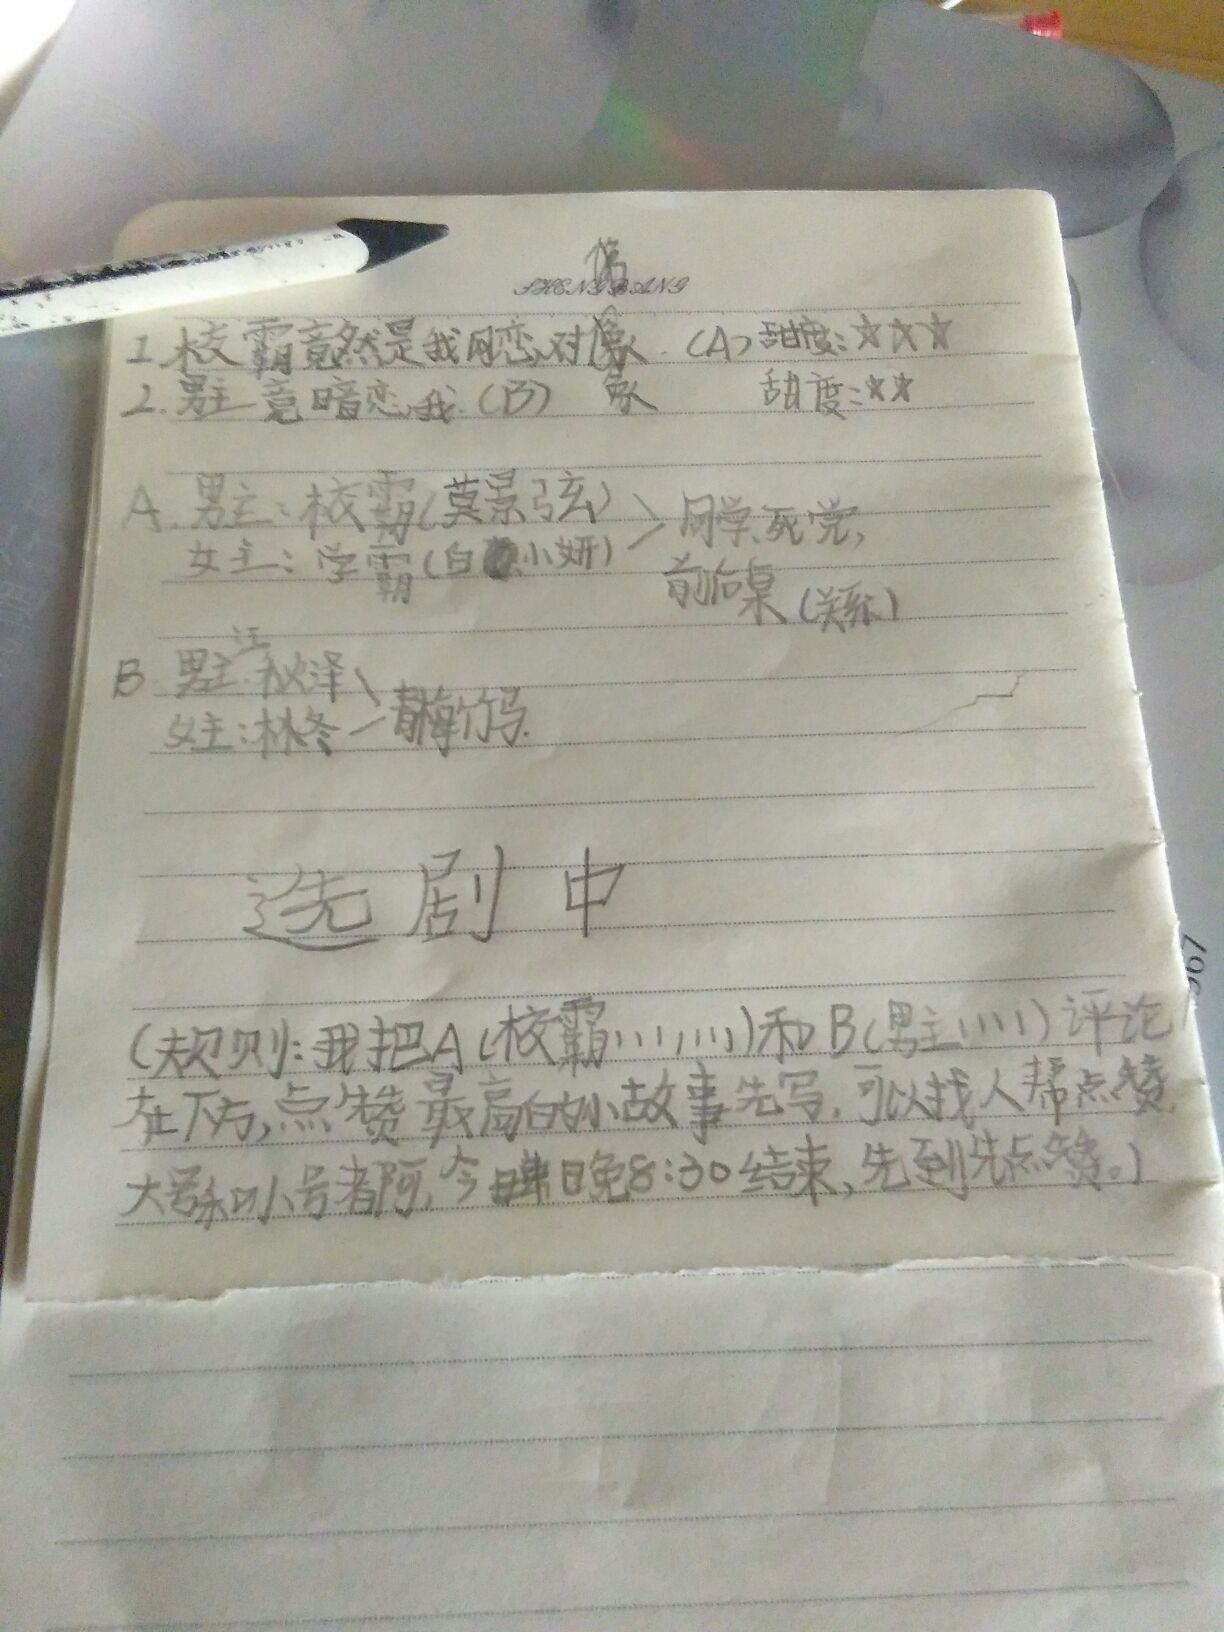 SHENGBANG
1. 校霸竟然是我网恋对象 (A) 甜度:☆☆☆
2. 男主竟暗恋我.(B) 象 甜度:☆☆
A. 男主:校霸(莫景弦)
同学、死党,
女主:学霸(白小妍)
前后桌(关系)
江
B. 男主:秋泽
青梅竹马.
女主:林冬
选剧中
(规则:我把A(校霸……)和B(男主……)评论
在下方,点赞最高的小故事先写,可以找人帮点赞,
大号和小号者阿,今日晚8:30结束,先到先点赞。)
967